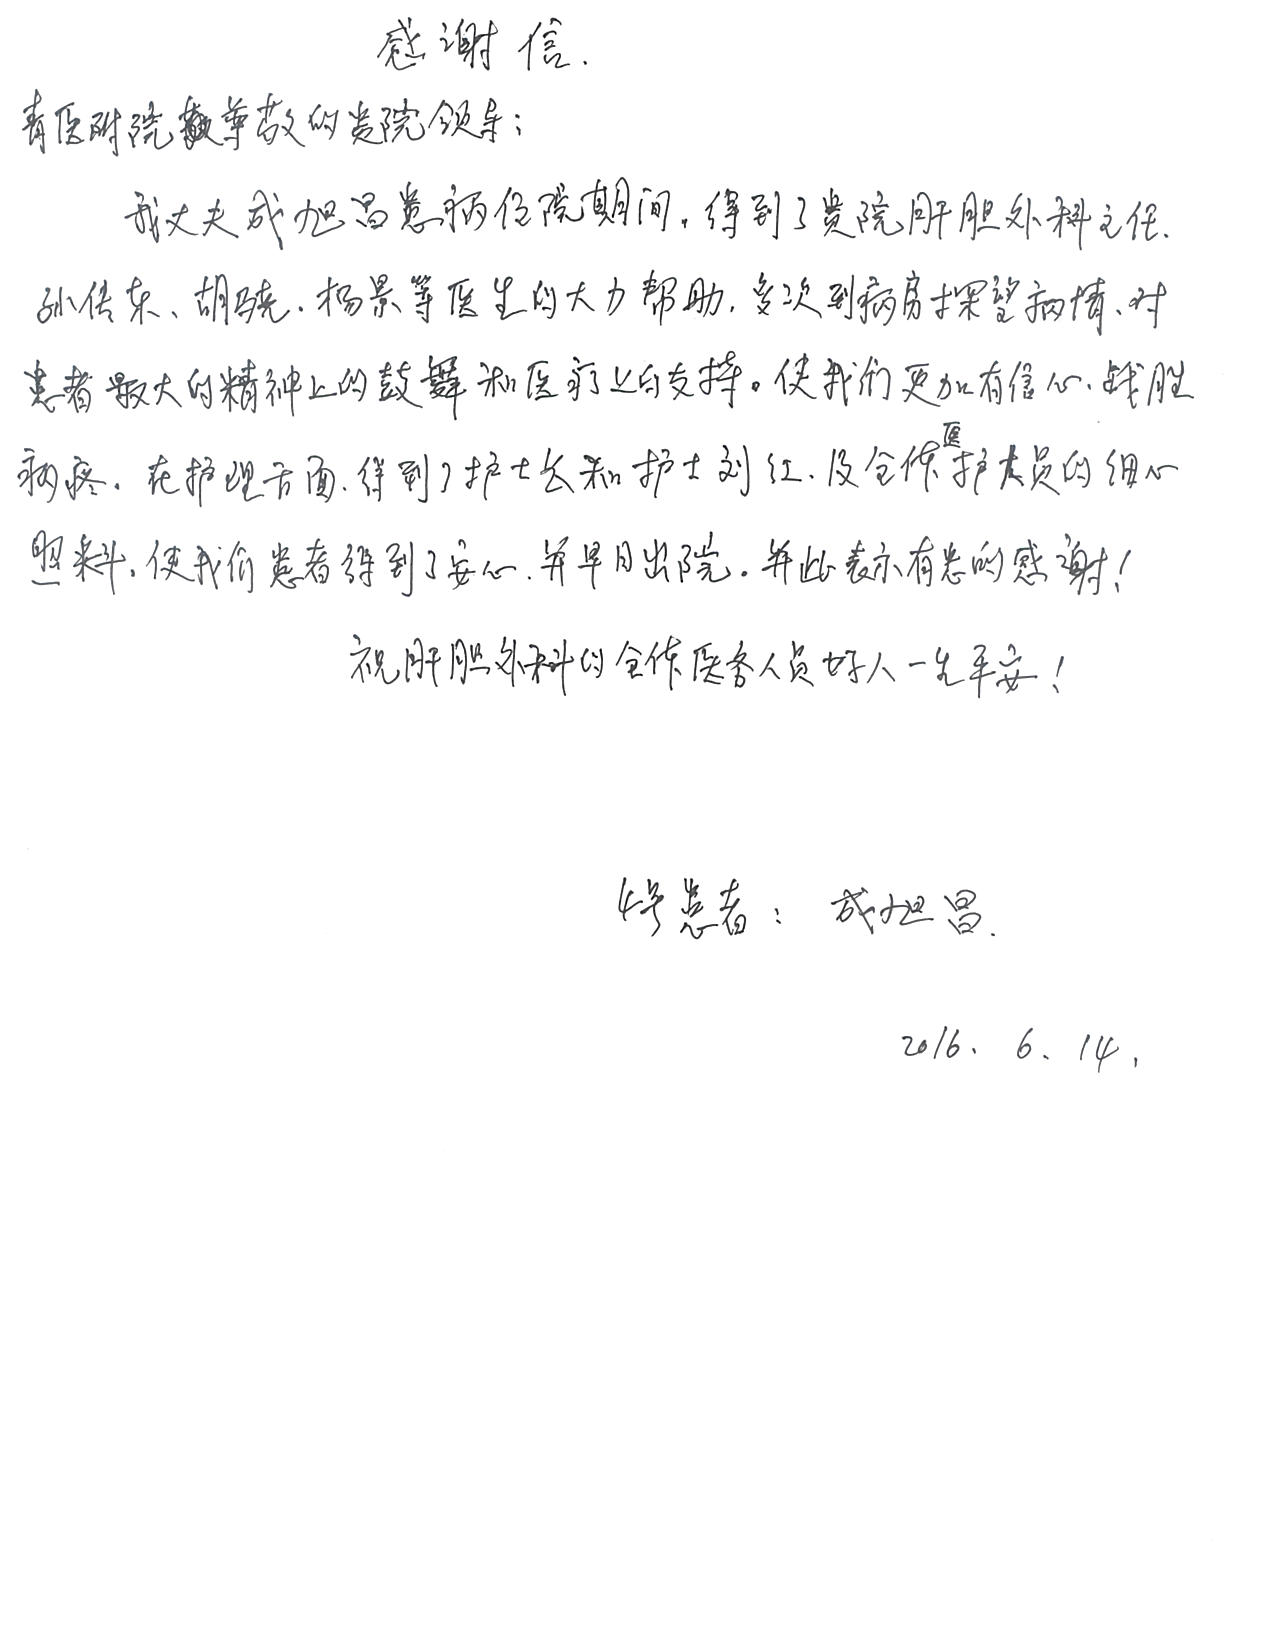 感谢信.
青医附院尊敬的贵院领导：
我丈夫成旭昌患病住院期间,得到了贵院肝胆外科主任.
孙传东、胡骁.杨景等医生的大力帮助.多次到病房探望病情、对
患者最大的精神上的鼓舞和医疗上的支持。使我们更加有信心.战胜
病疼.在护理方面.得到了护士长和护士刘红.及全体医护人员的细心
照料.使我们患者得到了安心.并早日出院。并此表示有患的感谢!
祝肝胆外科的全体医务人员好人一生平安!
4号患者: 成旭昌.
2016. 6. 14.